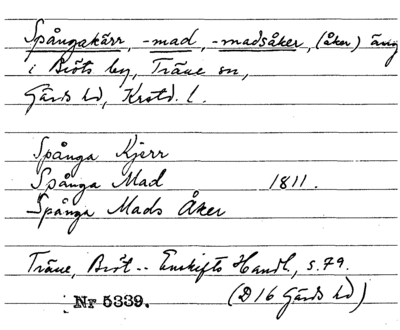 Spångakärr, -mad, -madsåker, (åker) äng
i Bröts by, Träne sn,
Gärds hd, Krstd. l.
Spånga Kjerr
Spånga Mad 1811.
Spånga Mads Åker
Träne, Bröt -- Enskifts Handl., s. 79.
Nr 5339. (D16 Gärds hd)